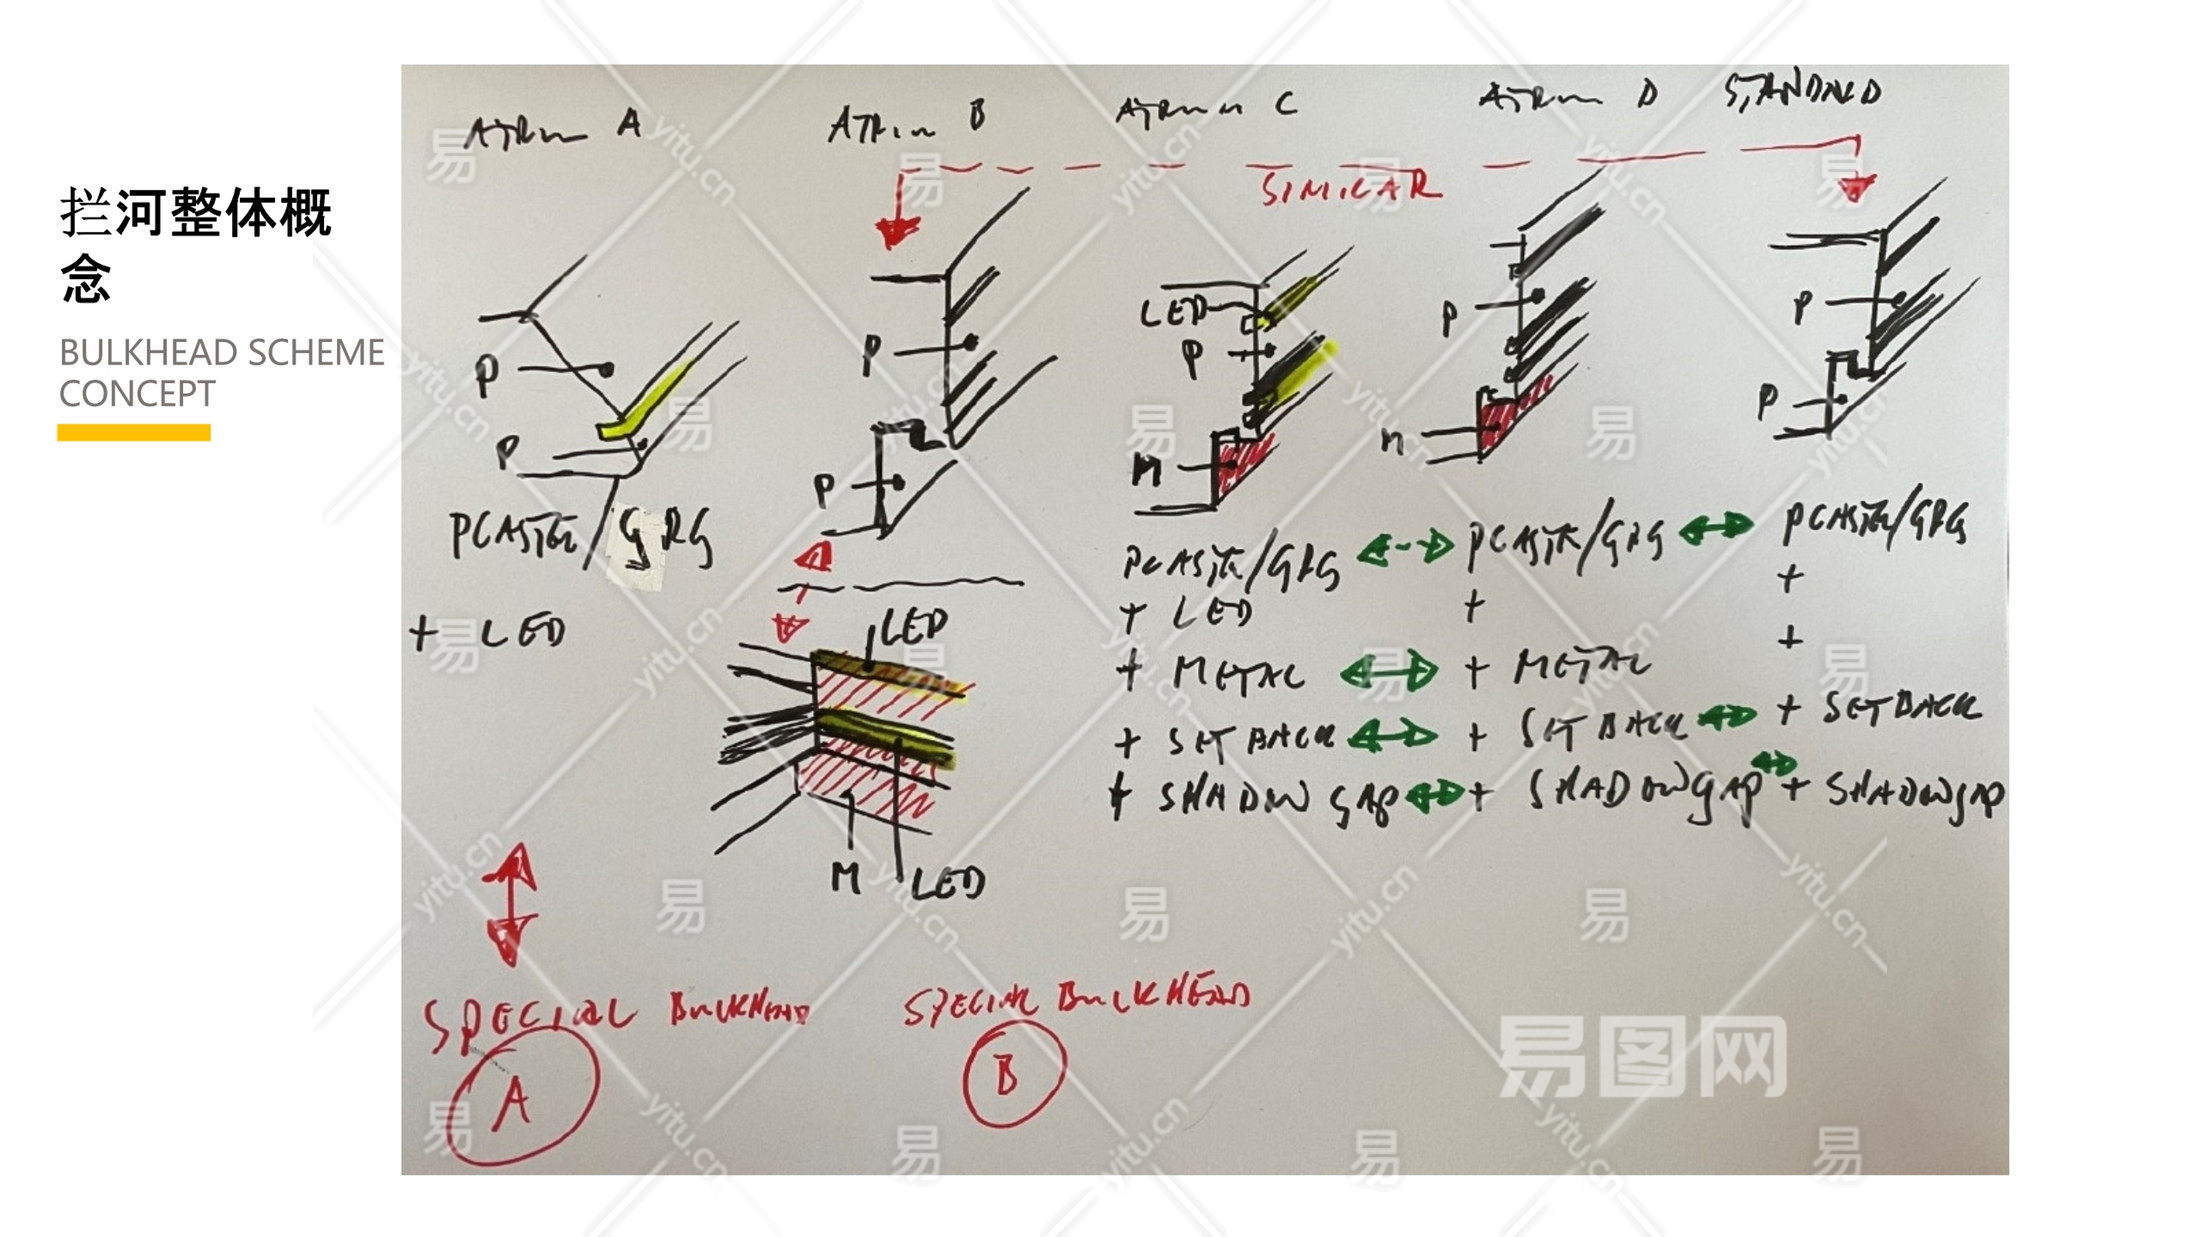 拦河整体概
念
BULKHEAD SCHEME
CONCEPT
ATRIUM A
ATRIUM B
ATRIUM C
ATRIUM D
STANDARD
SIMILAR
P
P
PLASTER/GRG
+ LED
P
P
LED
M
LED
LED
P
M
P
M
P
P
PLASTER/GRG
+ LED
+ METAL
+ SET BACK
+ SHADOW GAP
PLASTER/GRG
+
+ METAL
+ SET BACK
+ SHADOW GAP
PLASTER/GRG
+
+
+ SETBACK
+ SHADOW GAP
SPECIAL BULKHEAD
A
SPECIAL BULKHEAD
B
易图网
yitu.cn
易